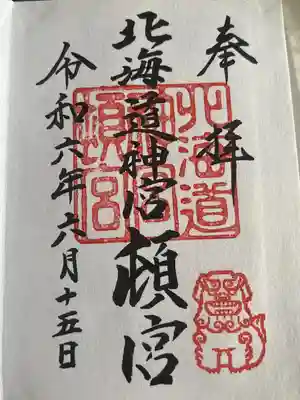 奉拝
北海道神宮頓宮
北海道神宮頓宮
令和六年六月十五日